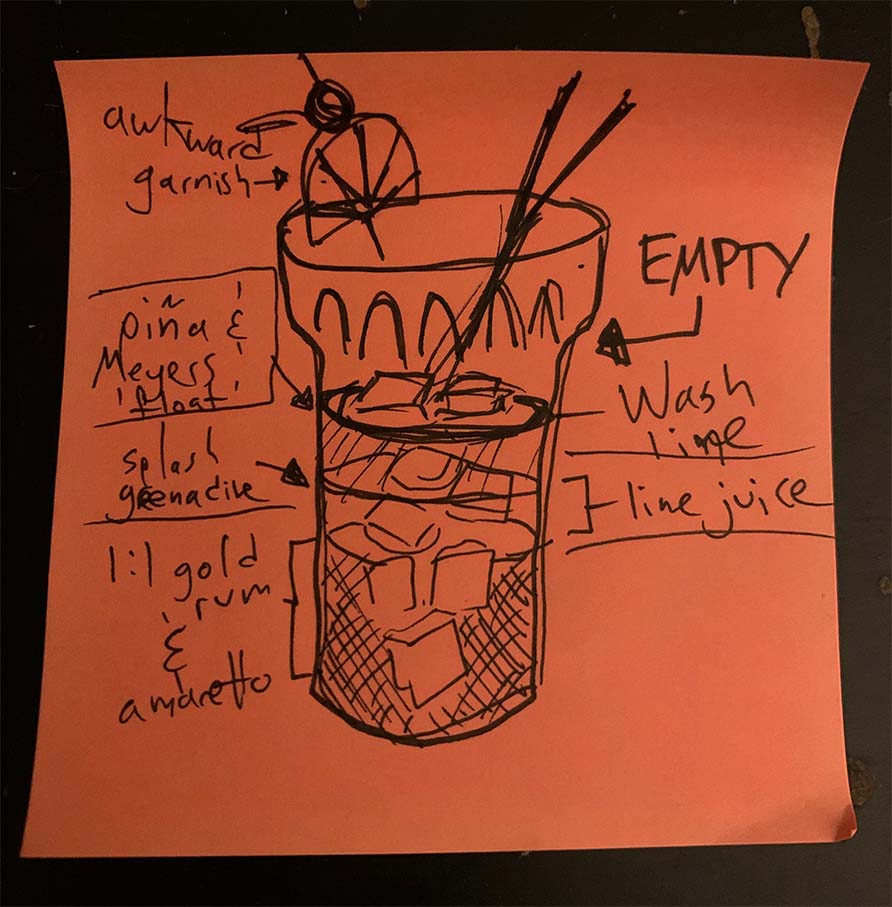 awkward
garnish
EMPTY
piña &
Meyers
'float'
Wash
line
splash
grenadine
lime juice
1:1 gold
rum
&
amaretto